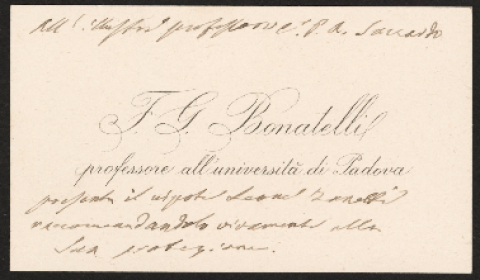 All'illustre professore P. A. Saccardo
F. G. Bonatelli
professore all'università di Padova
presenta il nipote Zanelli
raccomandandolo vivamente alla
Sua protezione.